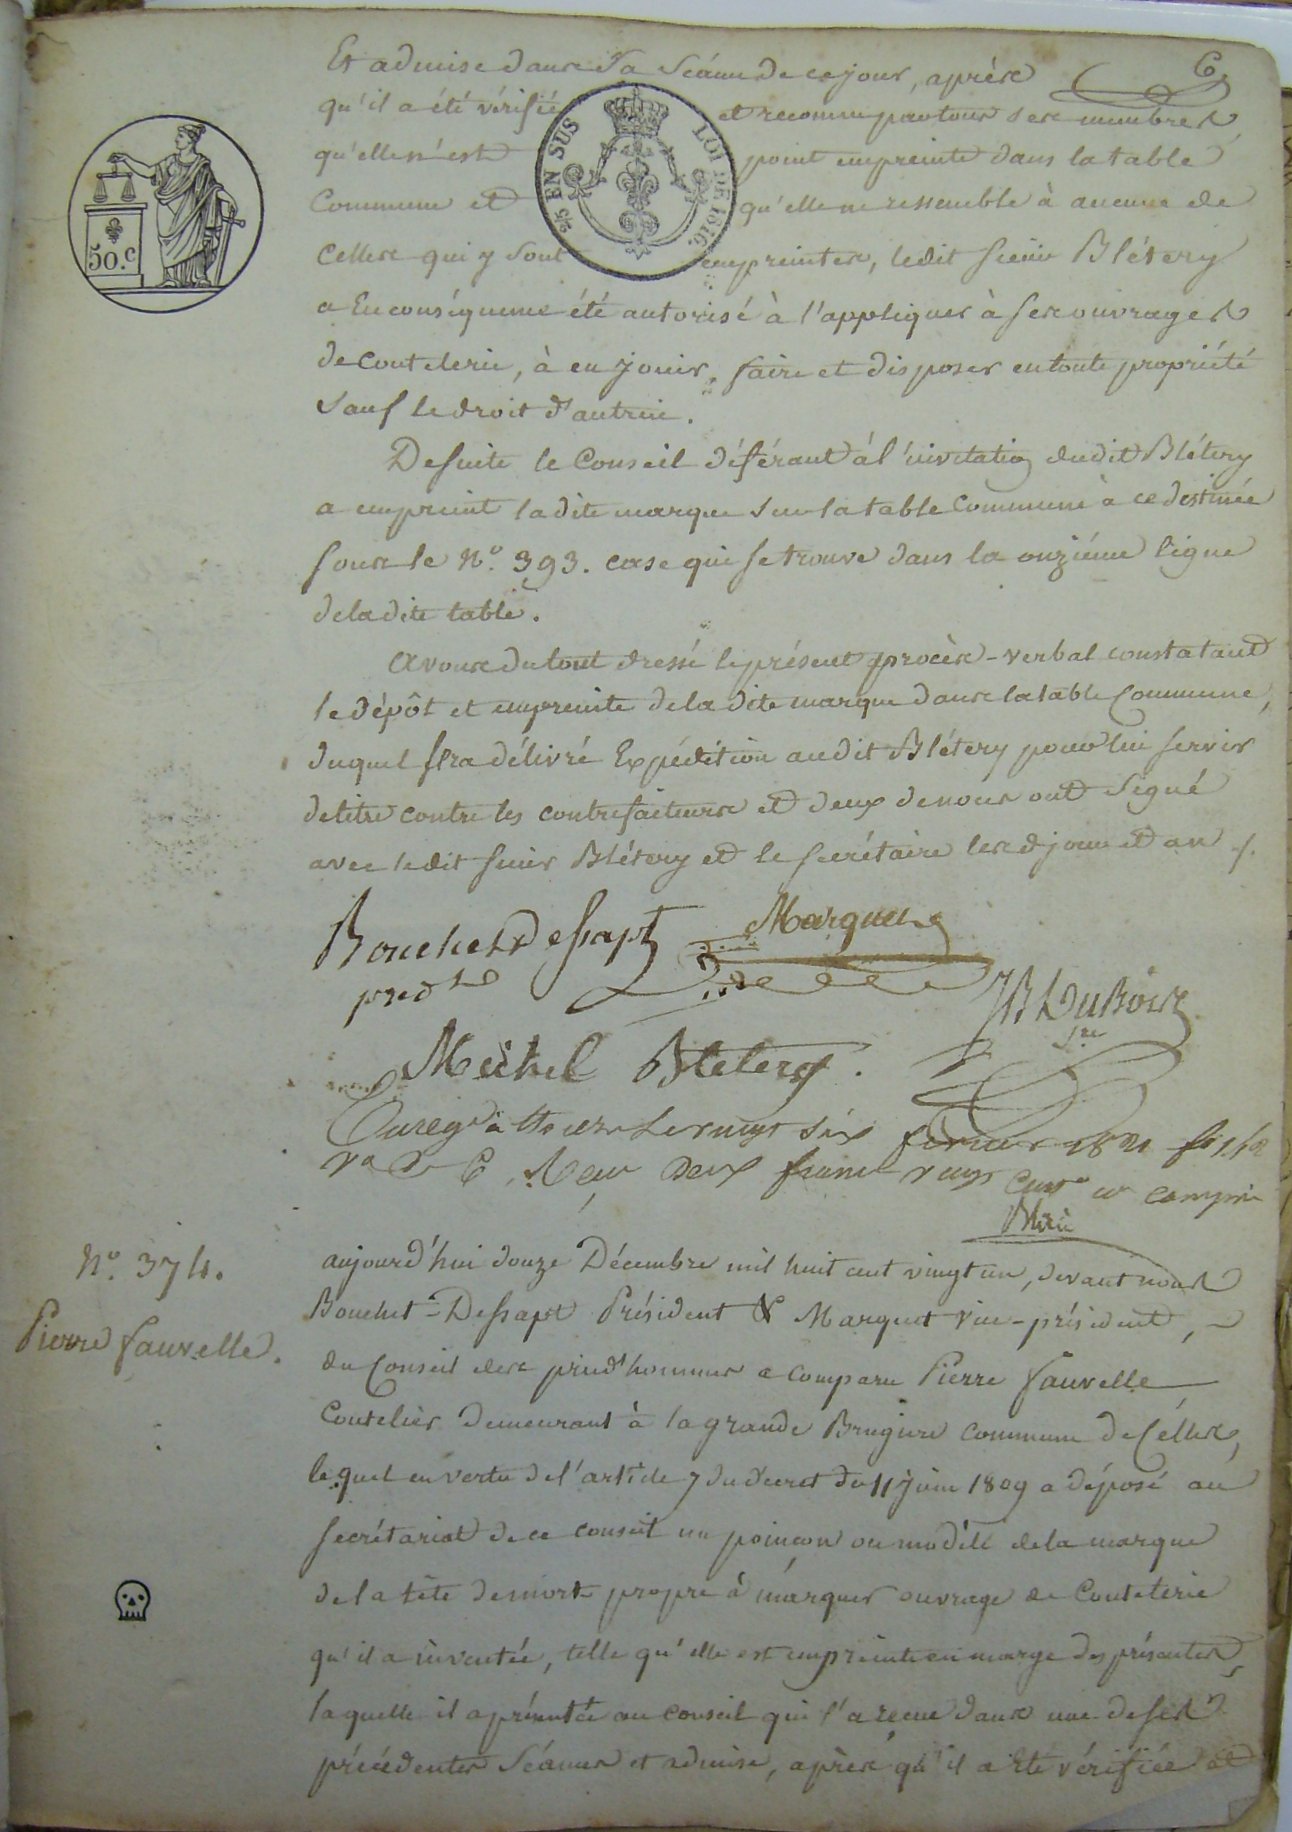 6
Et admise dans sa Séance de ce jour, après
qu'il a été vérifié et reconnu par tous ses membres
qu'elle n'est point empreinte dans la table
Commune et qu'elle ne ressemble à aucune de
Celles qui y sont empreintes, ledit sieur Blétery
a En conséquence été autorisé à l'appliquer à ses ouvrages
de Coutelerie, à en jouir, faire et disposer en toute propriété
sauf le droit d'autrui.
De suite le Conseil déférant à l'invitation dudit Blétery
a empreint ladite marque sur la table Commune à ce destinée
sous le N.o 393. case qui se trouve dans la onzième ligne
de ladite table.
Avons du tout dressé le présent procès-verbal constatant
le dépôt et empreinte de la dite marque dans la table Commune,
duquel sera délivré Expédition audit Blétery pour lui servir
de titre contre les contrefacteurs et deux de nous ont signé
avec ledit sieur Blétery et le secrétaire lesd. jour et an
50.C
2/5 EN SUS
LOI DE 1816.
Bouchet Dessapt
Marquet
presdt
JB DuBois
sre
Michel Bletery.
Enregé à Thiers Le vingt six février 1821
Vo Ce Reçu deux francs vingt centes
N.o 374.
Pierre fauvelle.
aujourd'hui douze Décembre mil huit cent vingt un, devant nous
Bouchet-Dessapt Président & Marquet vice-président,
du Conseil des prud'hommes a comparu Pierre fauvelle
Coutelier demeurant à la grande Brugière commune de Celles,
lequel en vertu de l'article 7 du décret du 11 juin 1809 a déposé au
secrétariat de ce conseil un poinçon ou modèle de la marque
de la tête de mort propre à marquer ouvrage de Coutelerie
qu'il a inventée, telle qu'elle est empreinte en marge des présentes
laquelle il a présentée au conseil qui l'a reçue dans une de ses
précédentes Séances et admise, après qu'il a été vérifiée et